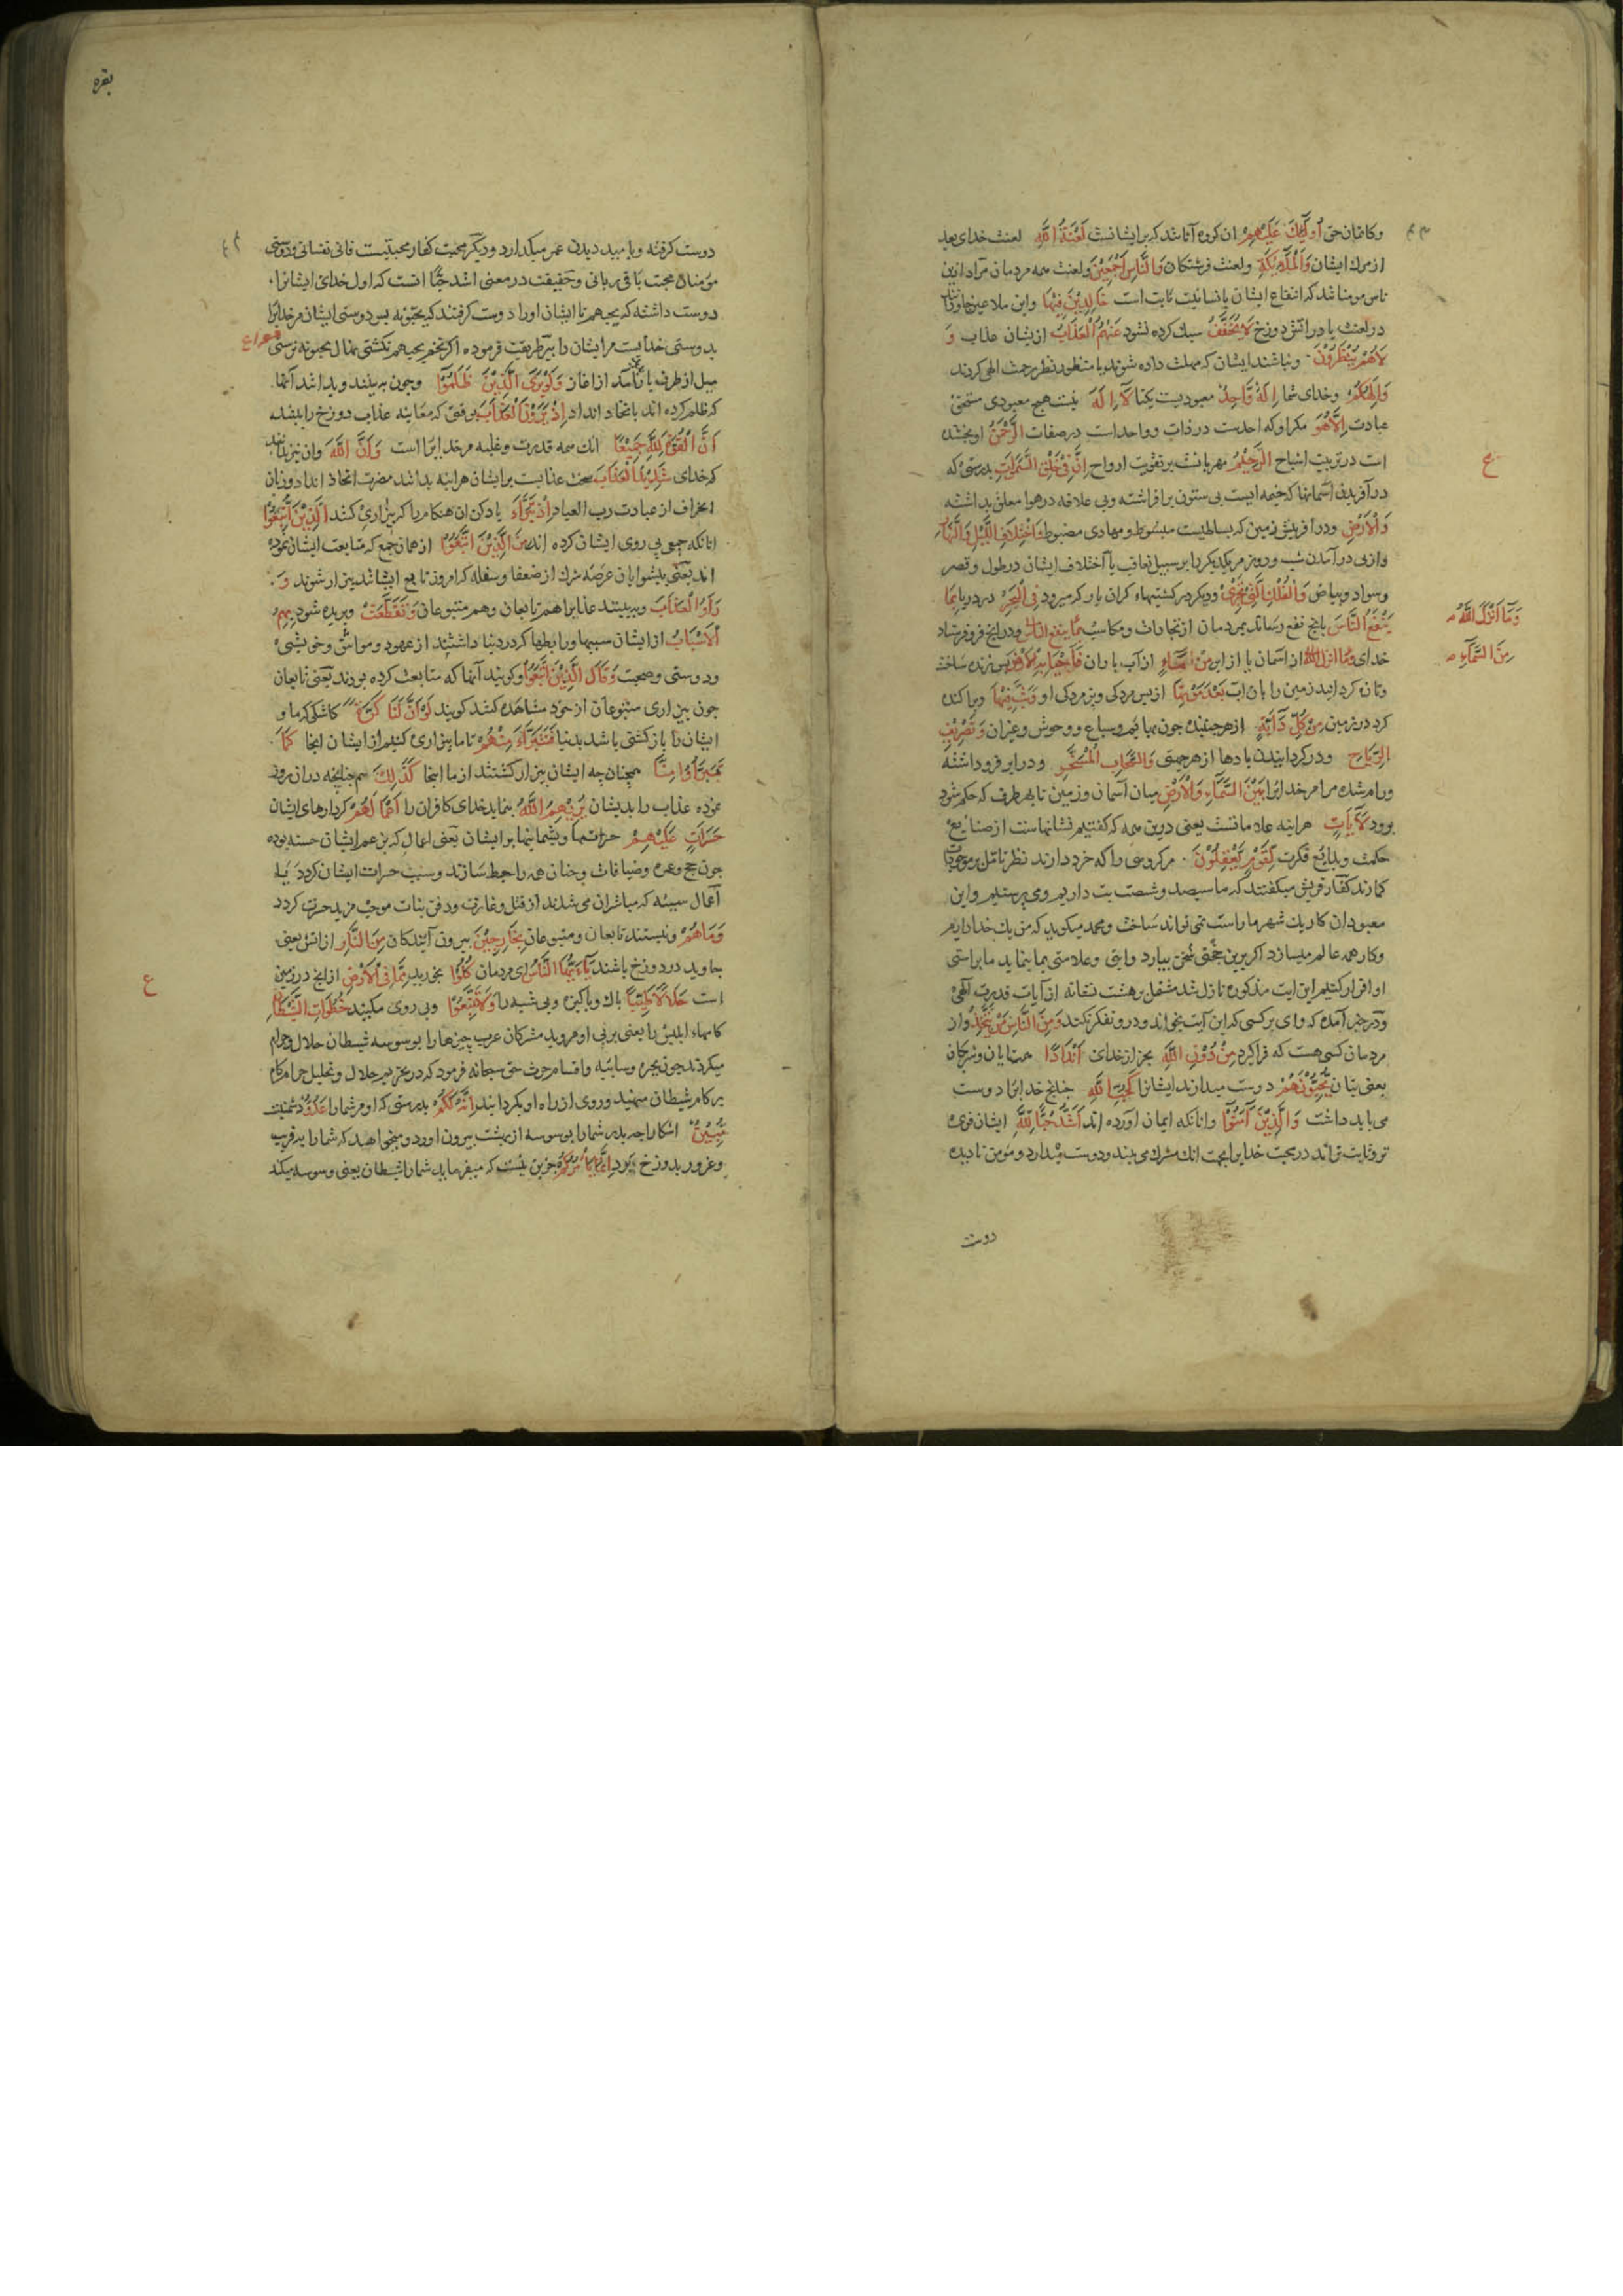 وکاتمان حق أُولَٰئِكَ عَلَيْهِمْ ان کروه آنانند که بر ایشانست لَعْنَةُ اللَّهِ لعنت خدای بعد
از مرك ایشان وَالْمَلَائِكَةِ ولعنت فرشتکان وَالنَّاسِ أَجْمَعِينَ ولعنت همه مردمان مراد ازین
ناس مومنانند که انتفاع ایشان بانسانیت ثابت است خَالِدِينَ فِيهَا واین ملاعین جاویدانند
در لعنت یا در اتش دوزخ لَا يُخَفَّفُ سبك کرده نشود عَنْهُمُ الْعَذَابُ ازیشان عذاب وَ
لَا هُمْ يُنْظَرُونَ ونباشند ایشان که مهلت داده شوند یا منظور نظر رحمت الهی کردند
وَإِلَٰهُكُمْ وخدای شما إِلَٰهٌ وَاحِدٌ معبودیست یکتا لَا إِلَٰهَ نیست هیچ معبودی مستحق
عبادت إِلَّا هُوَ مکر او که احدست در ذات وواحداست در صفات الرَّحْمَٰنُ او بخشنده
است در تربیت اشباح الرَّحِيمُ مهربانست بر تقویت ارواح إِنَّ فِي خَلْقِ السَّمَاوَاتِ بدرستی که
در آفریدن آسمانها که خیمه ایست بی ستون برافراشته وبی علاقه در هوا معلق بداشته
وَالْأَرْضِ ودر آفرینش زمین که بساطیست مبسوط ومهادی مضبوط وَاخْتِلَافِ اللَّيْلِ وَالنَّهَارِ
وازپی در آمدن شب وروز مر یکدیکر را بر سبیل تعاقب یا اختلاف ایشان در طول وقصر
وسواد وبیاض وَالْفُلْكِ الَّتِي تَجْرِي ودیکر در کشتیهاء کران بار که میرود فِي الْبَحْرِ در دریا بِمَا
يَنْفَعُ النَّاسَ بانچه نفع رساند بمردمان از تجارات ومکاسب بما ینفع الناس ودر انچه فرو فرستاد
خدای وما انزل الله از آسمان یا از ابر مِنَ السَّمَاءِ از آب باران فَأَحْيَا بِهِ الْأَرْضَ پس زنده ساخت
وتازه کردانید زمین را بان اب بَعْدَ مَوْتِهَا از پس مردکی وپژمردکی او وَبَثَّ فِيهَا وپراکنده
کرد در زمین مِنْ كُلِّ دَابَّةٍ از هر جنبنده چون بهایم وسباع ووحوش وغیران وَتَصْرِيفِ
الرِّيَاحِ ودر کردانیدن بادها از هر جهتی وَالسَّحَابِ الْمُسَخَّرِ ودر ابر فرو داشته
ورام شده مر امر خدایرا بَيْنَ السَّمَاءِ وَالْأَرْضِ میان آسمان وزمین تا بهر طرف که حکم شود
برود لَآيَاتٍ هراینه علاماتست یعنی درین همه که کفتیم نشانهاست از صنایع
حکمت وبدایع قدرت لِقَوْمٍ يَعْقِلُونَ مر کروهی را که خرد دارند نظر تامل بر موجودات
کمارند کفار قریش میکفتند که ما سیصد وشصت بت داریم ومی پرستیم واین
معبودان کار یك شهر ما راست نمی توانند ساخت ومحمد میکوید که من یك خدا دارم
وکار همه عالم میسازد اکر برین سخن حجتی بیارد وآیتی وعلامتی بما بنماید ما براستی
او اقرار کنیم این ایت مذکوره نازل شد مشتمل بر هشت نشانه از آیات قدرت الهی
ودر خبر آمده که وای بر کسی که این آیت بخواند ودرو تفکر نکند وَمِنَ النَّاسِ مَنْ يَتَّخِذُ واز
مردمان کسی هست که فرا کیرد مِنْ دُونِ اللَّهِ بجز از خدای أَنْدَادًا همتایان وشریکان
یعنی بتان يُحِبُّونَهُمْ دوست میدارند ایشانرا كَحُبِّ اللَّهِ چنانچه خدایرا دوست
می باید داشت وَالَّذِينَ آمَنُوا وانانکه ایمان آورده اند أَشَدُّ حُبًّا لِلَّهِ ایشان قوی
تر وثابت تراند در محبت خدایرا بجهت انك مشرك می بیند ودوست میدارد ومؤمن نادیده
دوست
وَمَا أَنْزَلَ اللَّهُ
مِنَ السَّمَاءِ
ع
بقره
دوست کرفته وبامید دیدن عمر میکذارد ودیکر محبت کفار محبتیست فانی نفسانی ودوستی
مؤمنان محبت باقی ربانی وحقیقت در معنی اشد حبّا انست که اول خدای ایشانرا
دوست داشته که یحبهم تا ایشان اورا دوست کرفتند که یحبونه پس دوستی ایشان مر خدایرا
بدوستی خدایست مر ایشان را پیر طریقت فرموده اکر تخم یحبهم نکشتی نهال یحبونه نرستی
میل از طرف یار باید از اغاز وَلَوْ يَرَى الَّذِينَ ظَلَمُوا وچون به بینند وبدانند آنها
که ظلم کرده اند باتخاد انداد إِذْ يَرَوْنَ الْعَذَابَ بوقتی که معاینه عذاب دوزخ را ببینند
أَنَّ الْقُوَّةَ لِلَّهِ جَمِيعًا انك همه قدرت وغلبه مر خدایرا است وَأَنَّ اللَّهَ وان نیز بدانند
که خدای شَدِيدُ الْعَذَابِ سخت عذابست بر ایشان هراینه بدانند مضرت اتخاذ انداد وزیان
انحراف از عبادت رب العباد إِذْ تَبَرَّأَ یاد کن ان هنکام را که بیزاری کنند الَّذِينَ اتُّبِعُوا
انانکه جمعی پی روی ایشان کرده اند مِنَ الَّذِينَ اتَّبَعُوا از همان جمع که متابعت ایشان نموده
اند یعنی پیشوایان عرصه شرك از ضعفا وسفله که امروز تابع ایشانند بیزار شوند وَ
رَأَوُا الْعَذَابَ وببینند عذابرا هم تابعان وهم متبوعان وَتَقَطَّعَتْ وبریده شود بِهِمُ
الْأَسْبَابُ از ایشان سببها ورابطها که در دنیا داشتند از عهود ومواثیق وخویشی
ودوستی وصحبت وَقَالَ الَّذِينَ اتَّبَعُوا وکویند آنها که متابعت کرده بودند یعنی تابعان
چون بیزاری متبوعان از خود مشاهده کنند کویند لَوْ أَنَّ لَنَا كَرَّةً کاشکی که ما و
ایشان را باز کشتی باشد بدنیا فَنَتَبَرَّأَ مِنْهُمْ تا ما بیزاری کنیم از ایشان انجا كَمَا
تَبَرَّءُوا مِنَّا همچنان چه ایشان بیزار کشتند از ما اینجا كَذَٰلِكَ همچنانچه دران روز
نموده عذاب را بدیشان يُرِيهِمُ اللَّهُ بنماید خدای کافران را أَعْمَالَهُمْ کردارهای ایشان
حَسَرَاتٍ عَلَيْهِمْ حسرتها وپشیمانیها بر ایشان یعنی اعمالی که بزعم ایشان حسنه بوده
چون حج وعمره وضیافات وچنان همه را حبط سازند وسبب حسرات ایشان کردد یا
آعمال سیئه که مباشران می شدند از قتل وغارت ودفن بنات موجب مزید حسرت کردد
وَمَا هُمْ ونیستند تابعان ومتبوعان بِخَارِجِينَ بیرون آیندکان مِنَ النَّارِ از اتش یعنی
جاوید در دوزخ باشند يَا أَيُّهَا النَّاسُ ای مردمان كُلُوا بخورید مِمَّا فِي الْأَرْضِ از انچه در زمین
است حَلَالًا طَيِّبًا پاك وپاکیزه وبی شبه را وَلَا تَتَّبِعُوا وپی روی مکنید خُطُوَاتِ الشَّيْطَانِ
کامهاء ابلیس را یعنی بر پی او مروید مشرکان عرب چیزها را بوسوسه شیطان حلال وحرام
میکردند چون بحیره وسائبه واقسام حرث حق سبحانه فرمود که در تحریم حلال وتحلیل حرام کام
بر کام شیطان منهید وروی از راه او بکردانید إِنَّهُ لَكُمْ بدرستی که او مر شما را عَدُوٌّ دشمنیست
مُبِينٌ اشکارا چه پدر شما را بوسوسه از بهشت بیرون اورد ومیخواهد که شما را به فریب
وغرور بدوزخ برد إِنَّمَا يَأْمُرُكُمْ جزین نیست که میفرماید شما را شیطان یعنی وسوسه میکند
ع